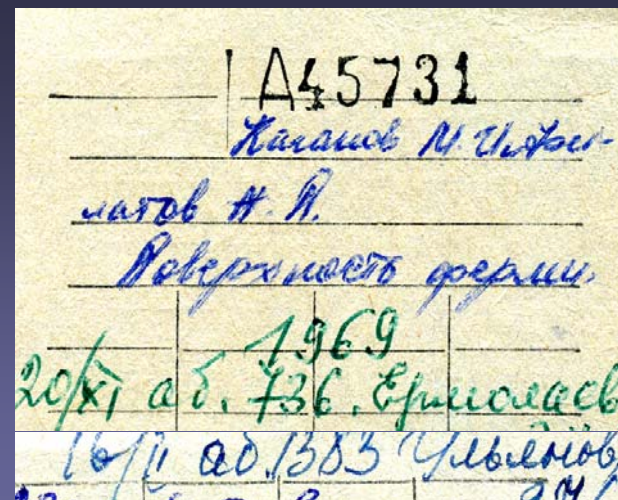 Д45731
Каганов М. И. Фи-
латов А. П.
Поверхность ферми.
1969
20/XI аб. 736. Ермолаев
16/II аб. 1383 Ульянов